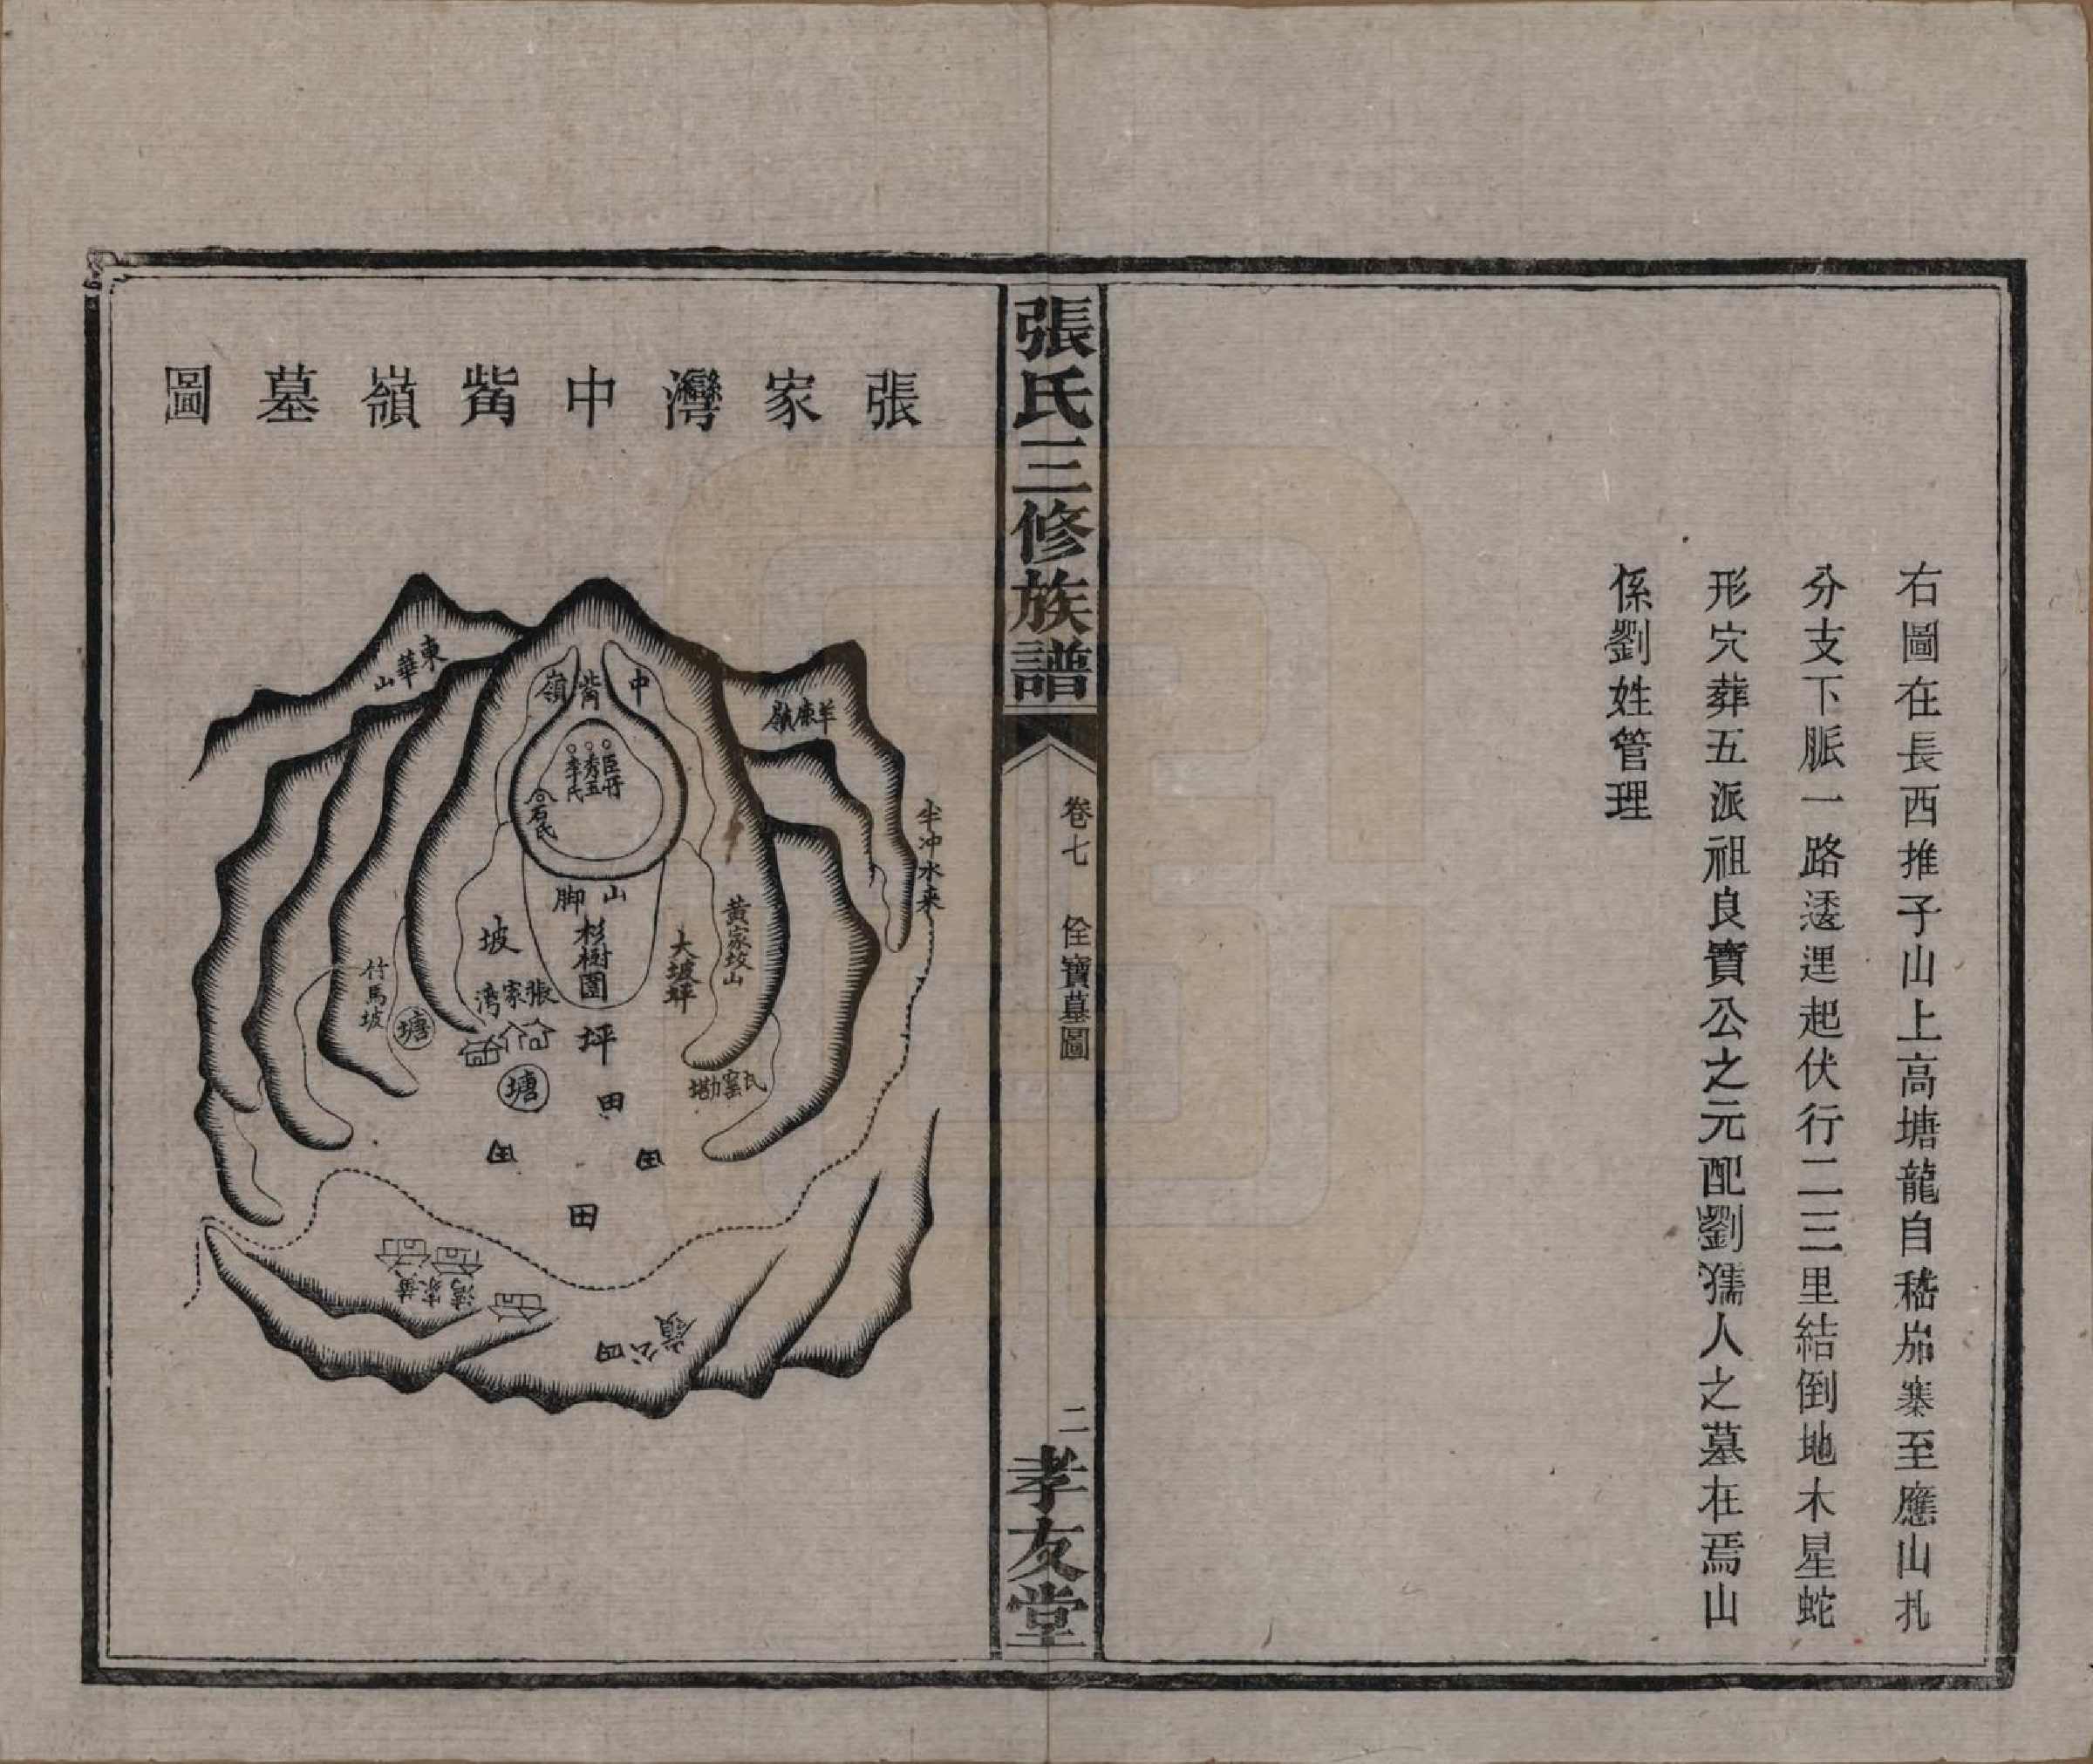 右圖在長西推子山上高塘龍自嵇茄寨至應山扎
分支下脈一路逶迤起伏行二三里結倒地木星蛇
形穴葬五派祖良寶公之元配劉孺人之墓在焉山
係劉姓管理
張氏三修族譜
卷七
佺寶墓圖
二
孝友堂
張家灣中觜嶺墓圖
東華山
中觜嶺
羊鹿嶺
臣再
秀五
李氏
石氏
坐冲水來
山脚
杉樹園
坡
大坡坪
黃家坟山
竹馬坡
塘
張家湾
坪
塘
瓦窰塝
田
田
田
田
黃家湾
四公嶺